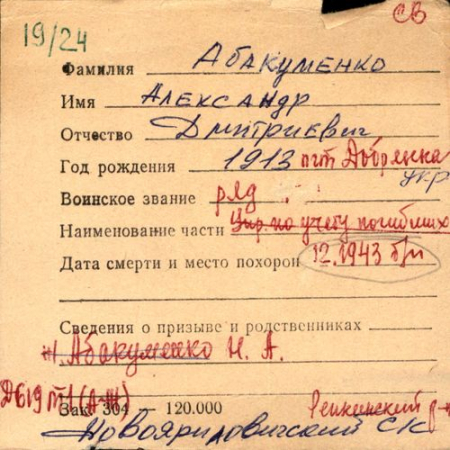 СВ
19/24
Фамилия Абакуменко
Имя Александр
Отчество Дмитриевич
Год рождения 1913 пгт Добрянка
укр
Воинское звание ряд
Наименование части Упр. по учету погибших
Дата смерти и место похорон 12.1943 б/п
Сведения о призыве и родственниках
ж. Абакуменко Н. А.
Д619
Зак. 304 120.000 Репкинский р-н
Новояриловичский с/с